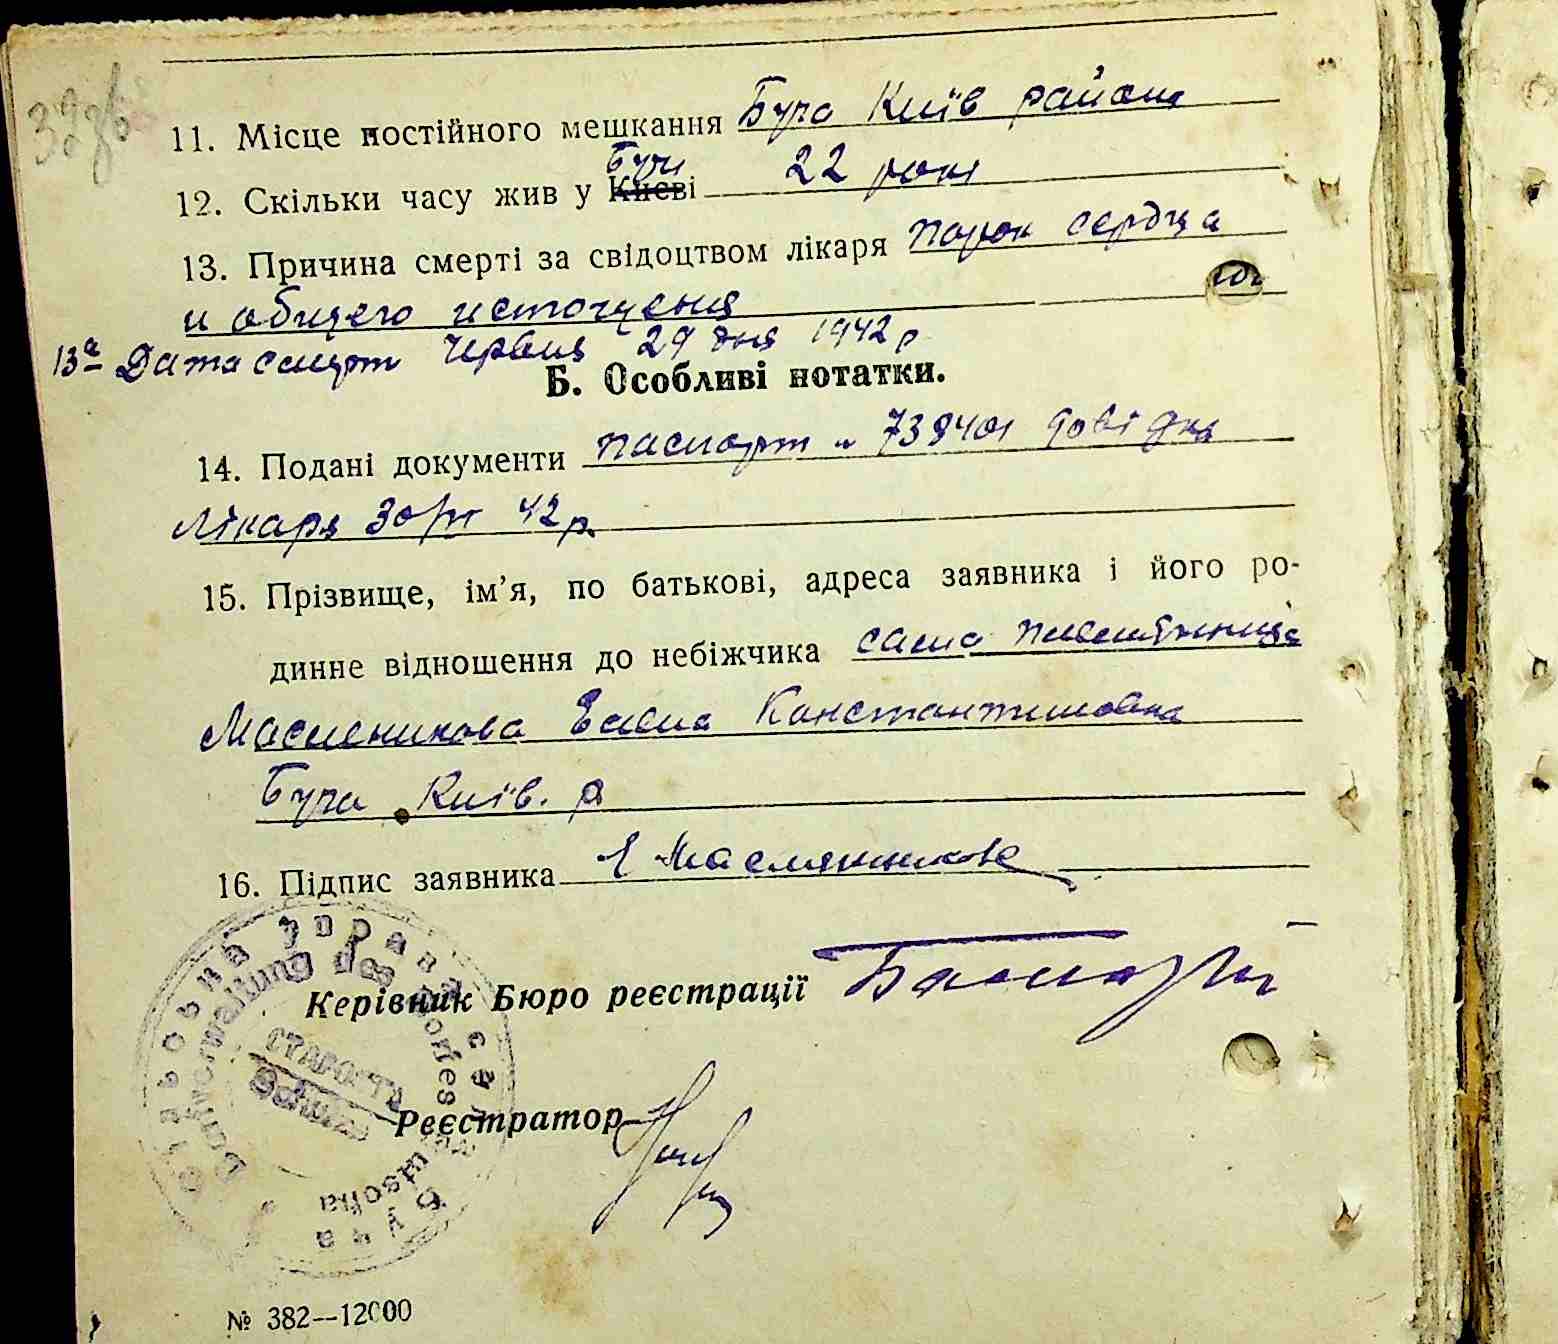 11. Місце постійного мешкання Буча Київ района
12. Скільки часу жив у Києві Бучі 22 роки
13. Причина смерті за свідоцтвом лікаря порок сердца
и общего истощения
13а Дата смерти Червня 29 дня 1942 р
Б. Особливі нотатки.
14. Подані документи паспорт довідка
лікаря 42 р.
15. Прізвище, ім’я, по батькові, адреса заявника і його ро-
динне відношення до небіжчика сама
Масленикова Константиновна
Буча Київ. р
16. Підпис заявника
Керівник Бюро реєстрації
Реєстратор
Сільська Управа села Буча
Dorfverwaltung des Dorfes
СТАРОСТА
№ 382--12000